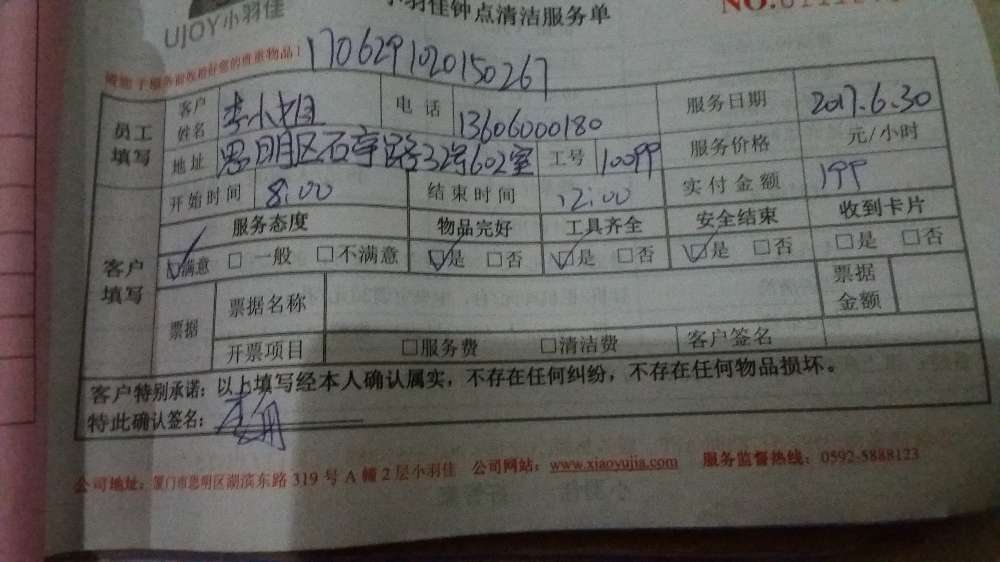 UJOY小羽佳
小羽佳钟点清洁服务单
NO.
170629102015026​7
员工填写 客户姓名 李小姐 电话 13606000180 服务日期 2017.6.30
地址 思明区石亭路32号602室 工号 10099 服务价格 元/小时
开始时间 8:00 结束时间 12:00 实付金额 199
客户填写 服务态度 物品完好 工具齐全 安全结束 收到卡片
☑满意 □一般 □不满意 ☑是 □否 ☑是 □否 ☑是 □否 □是 □否
票据 票据名称 票据金额
开票项目 □服务费 □清洁费 客户签名
客户特别承诺：以上填写经本人确认属实，不存在任何纠纷，不存在任何物品损坏。
特此确认签名：
公司地址：厦门市思明区湖滨东路 319 号 A 幢 2 层小羽佳 公司网站：www.xiaoyujia.com 服务监督热线：0592-5888123